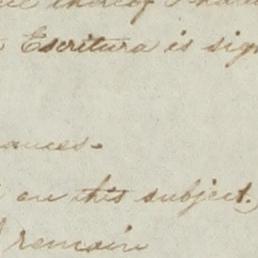 thereof I have
Escritura is sig
ances.
on this subject.
I remain